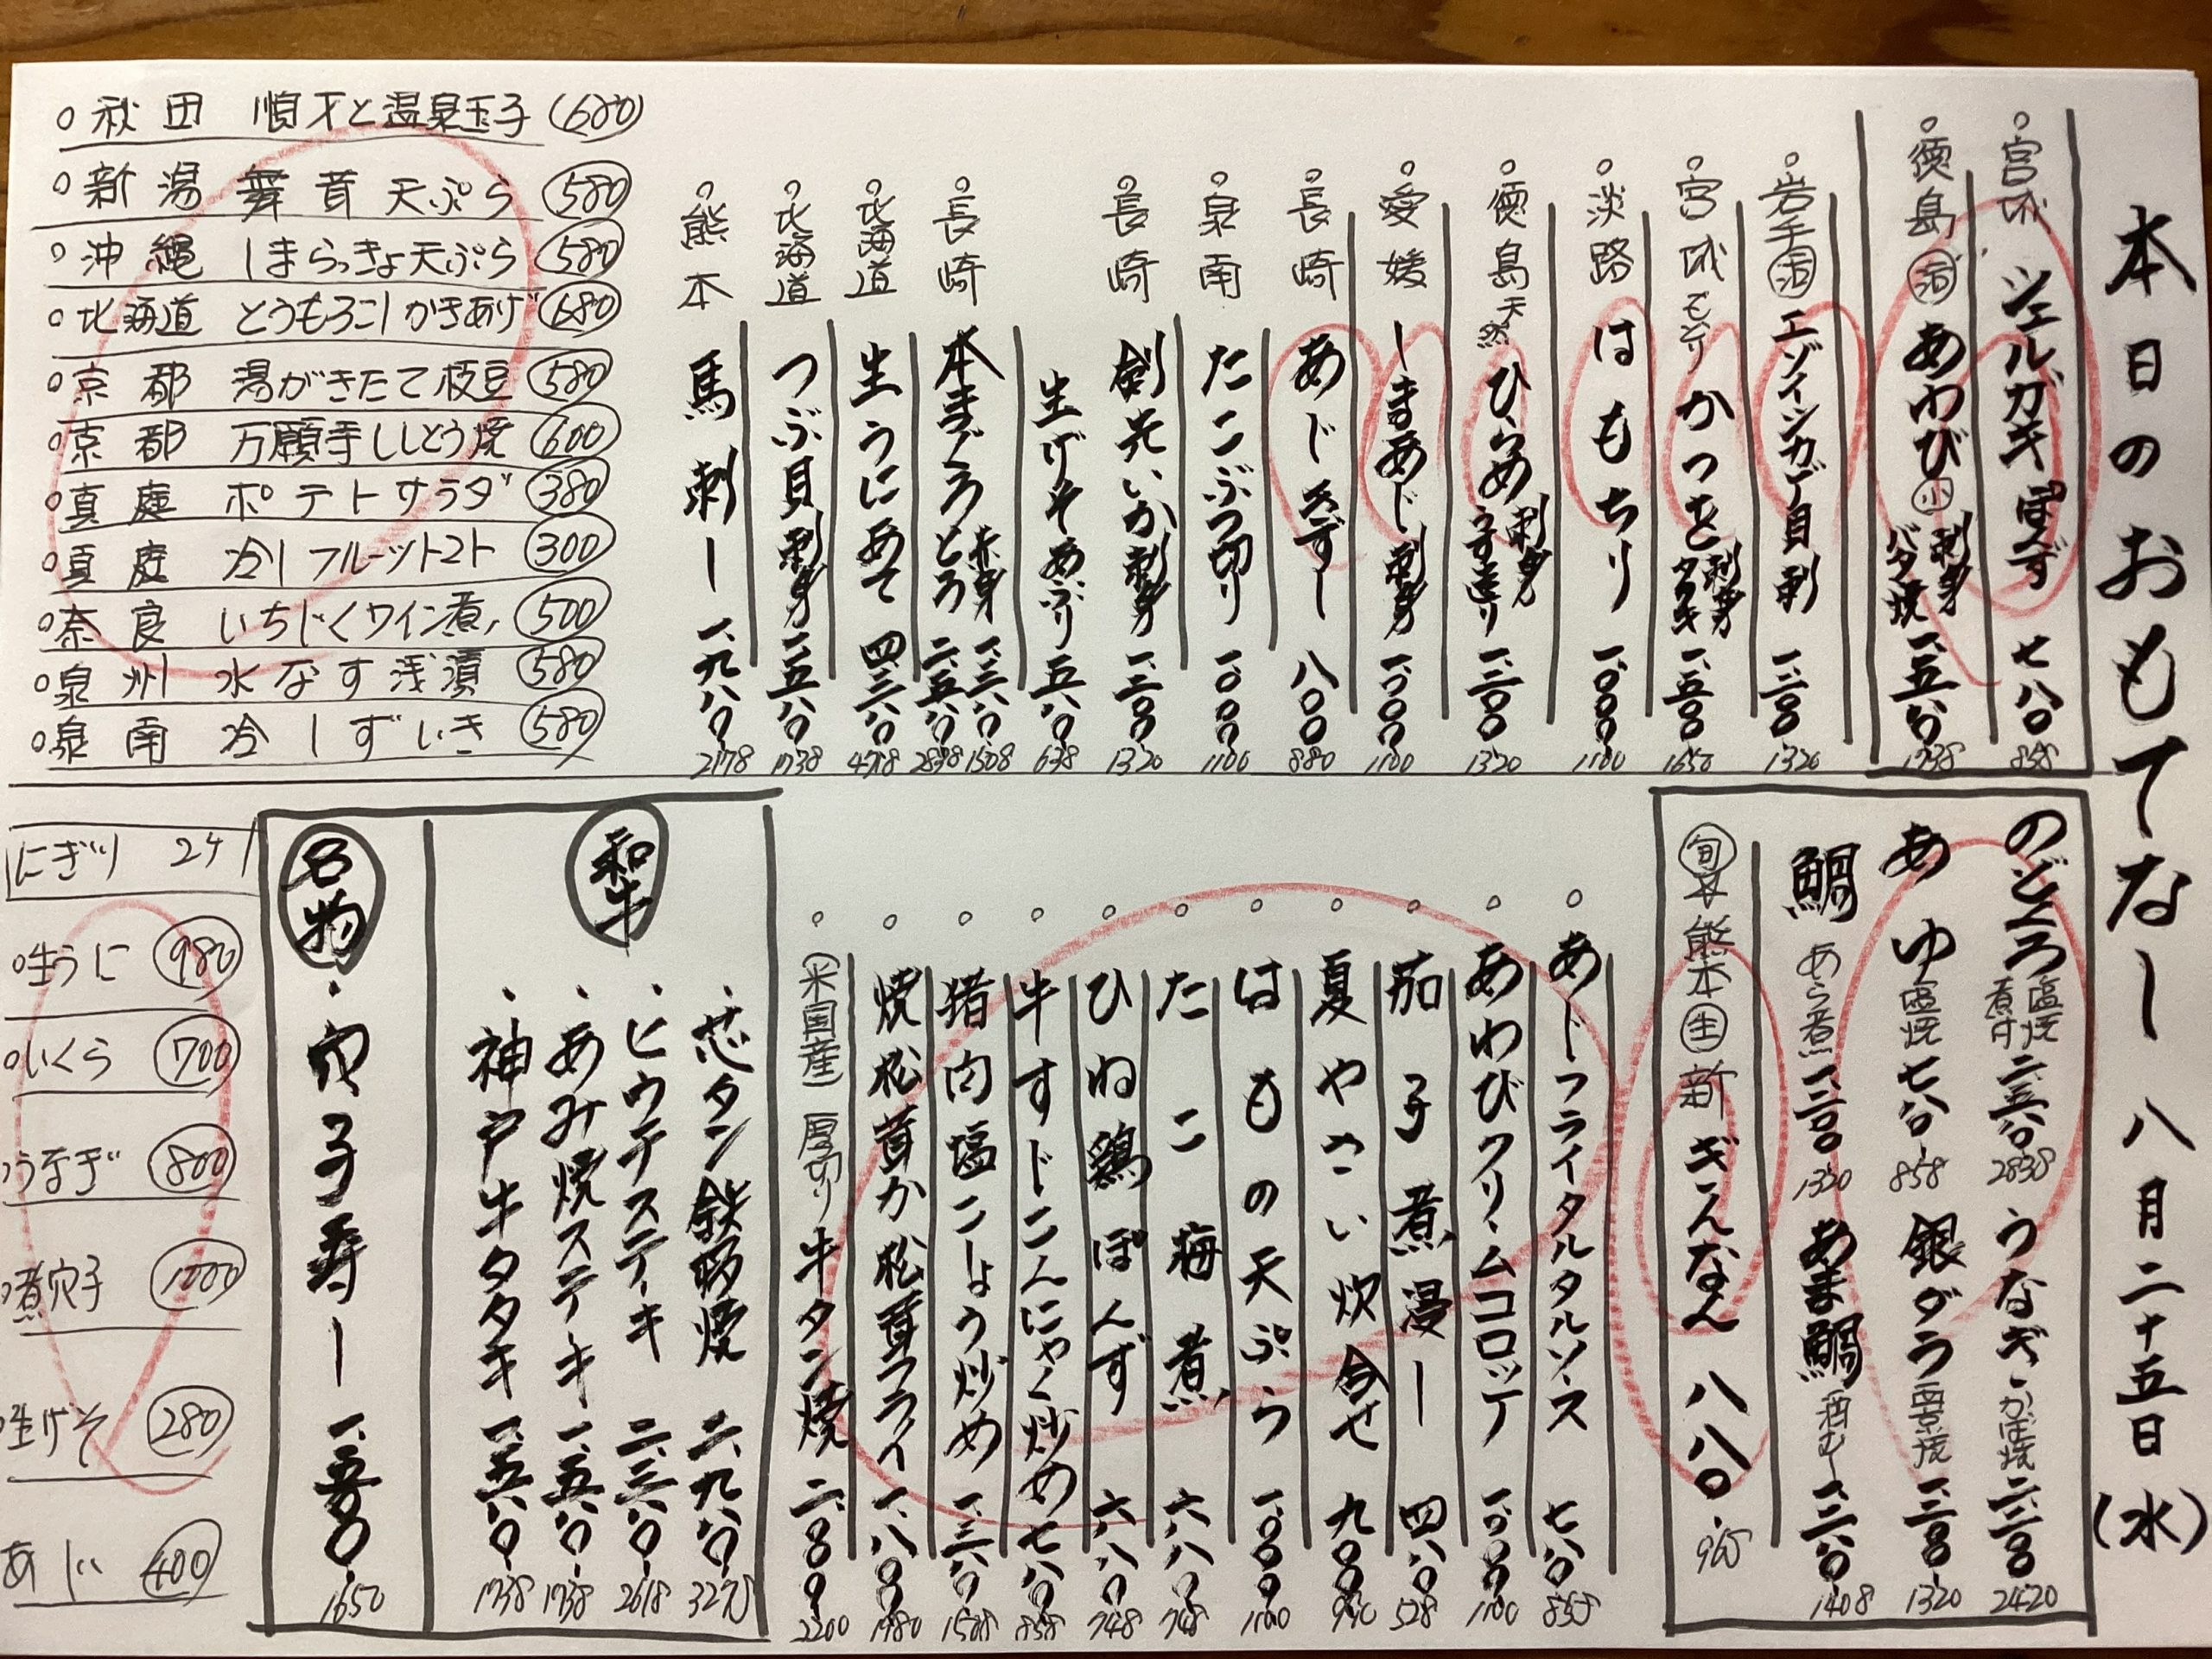 本日のおもてなし 八月二十五日(水)
宮城 シェルガキ ぽんず 七八〇 858
徳島 活 あわび 小 刺身 バター焼 一、五八〇 1738
岩手 活 エゾイシカゲ貝 刺 一、二〇〇 1320
宮城 もどり かつを 刺身 タタキ 一、五〇〇 1650
淡路 はもちり 一、〇〇〇 1100
徳島 天然 ひらめ 刺身 うす造り 一、二〇〇 1320
愛媛 しまあじ 刺身 一、〇〇〇 1100
長崎 あじきずし 八〇〇 880
泉南 たこぶつ切り 一、〇〇〇 1100
長崎 剣先いか 刺身 一、二〇〇 1320
生げそあぶり 五八〇 638
長崎 本まぐろ 赤身 一、三八〇 1508 とろ 二、五八〇 2838
北海道 生うにあて 四、三八〇 4718
北海道 つぶ貝 刺身 一、五八〇 1738
熊本 馬刺し 一、九八〇 2178
秋田 順才と温泉玉子 680
新潟 舞茸天ぷら 580
沖縄 しまらっきょ天ぷら 580
北海道 とうもろこしかきあげ 680
京都 湯がきたて枝豆 580
京都 万願寺ししとう焼 600
真庭 ポテトサラダ 380
真庭 冷しフルーツトマト 300
奈良 いちじくワイン煮 500
泉州 水なす浅漬 580
泉南 冷しずいき 580
のどぐろ 塩焼 煮付 二、五八〇 2838 うなぎ かば焼 二、二〇〇 2420
あゆ 塩焼 七八〇 858 銀ダラ 西京焼 一、二〇〇 1320
鯛 あら煮 一、二〇〇 1320 あま鯛 酒むし 一、二八〇 1408
旬 熊本 生 新ぎんなん 八八〇 968
あじフライタルタルソース 七八〇 858
あわびクリームコロッケ 一、〇〇〇 1100
茄子煮浸し 四八〇 528
夏やさい炊合せ 九〇〇 990
はもの天ぷら 一、〇〇〇 1100
たこ梅煮 六八〇 748
ひね鶏ぽんず 六八〇 748
牛すじこんにゃく炒め 七八〇 858
猪肉塩こしょう炒め 一、三八〇 1508
焼松茸か松茸フライ 一、八〇〇 1980
(米国産) 厚切り牛タン焼 二、〇〇〇 2200
和牛
芯タン鉄砂焼 二、九八〇 3278
ヒウチステーキ 二、三八〇 2618
あみ焼ステーキ 一、五八〇 1738
神戸牛タタキ 一、五八〇 1738
名物
穴子寿し 一、五〇〇 1650
にぎり 2ケ
生うに 980
いくら 700
うなぎ 800
煮穴子 1000
生げそ 280
あじ 400